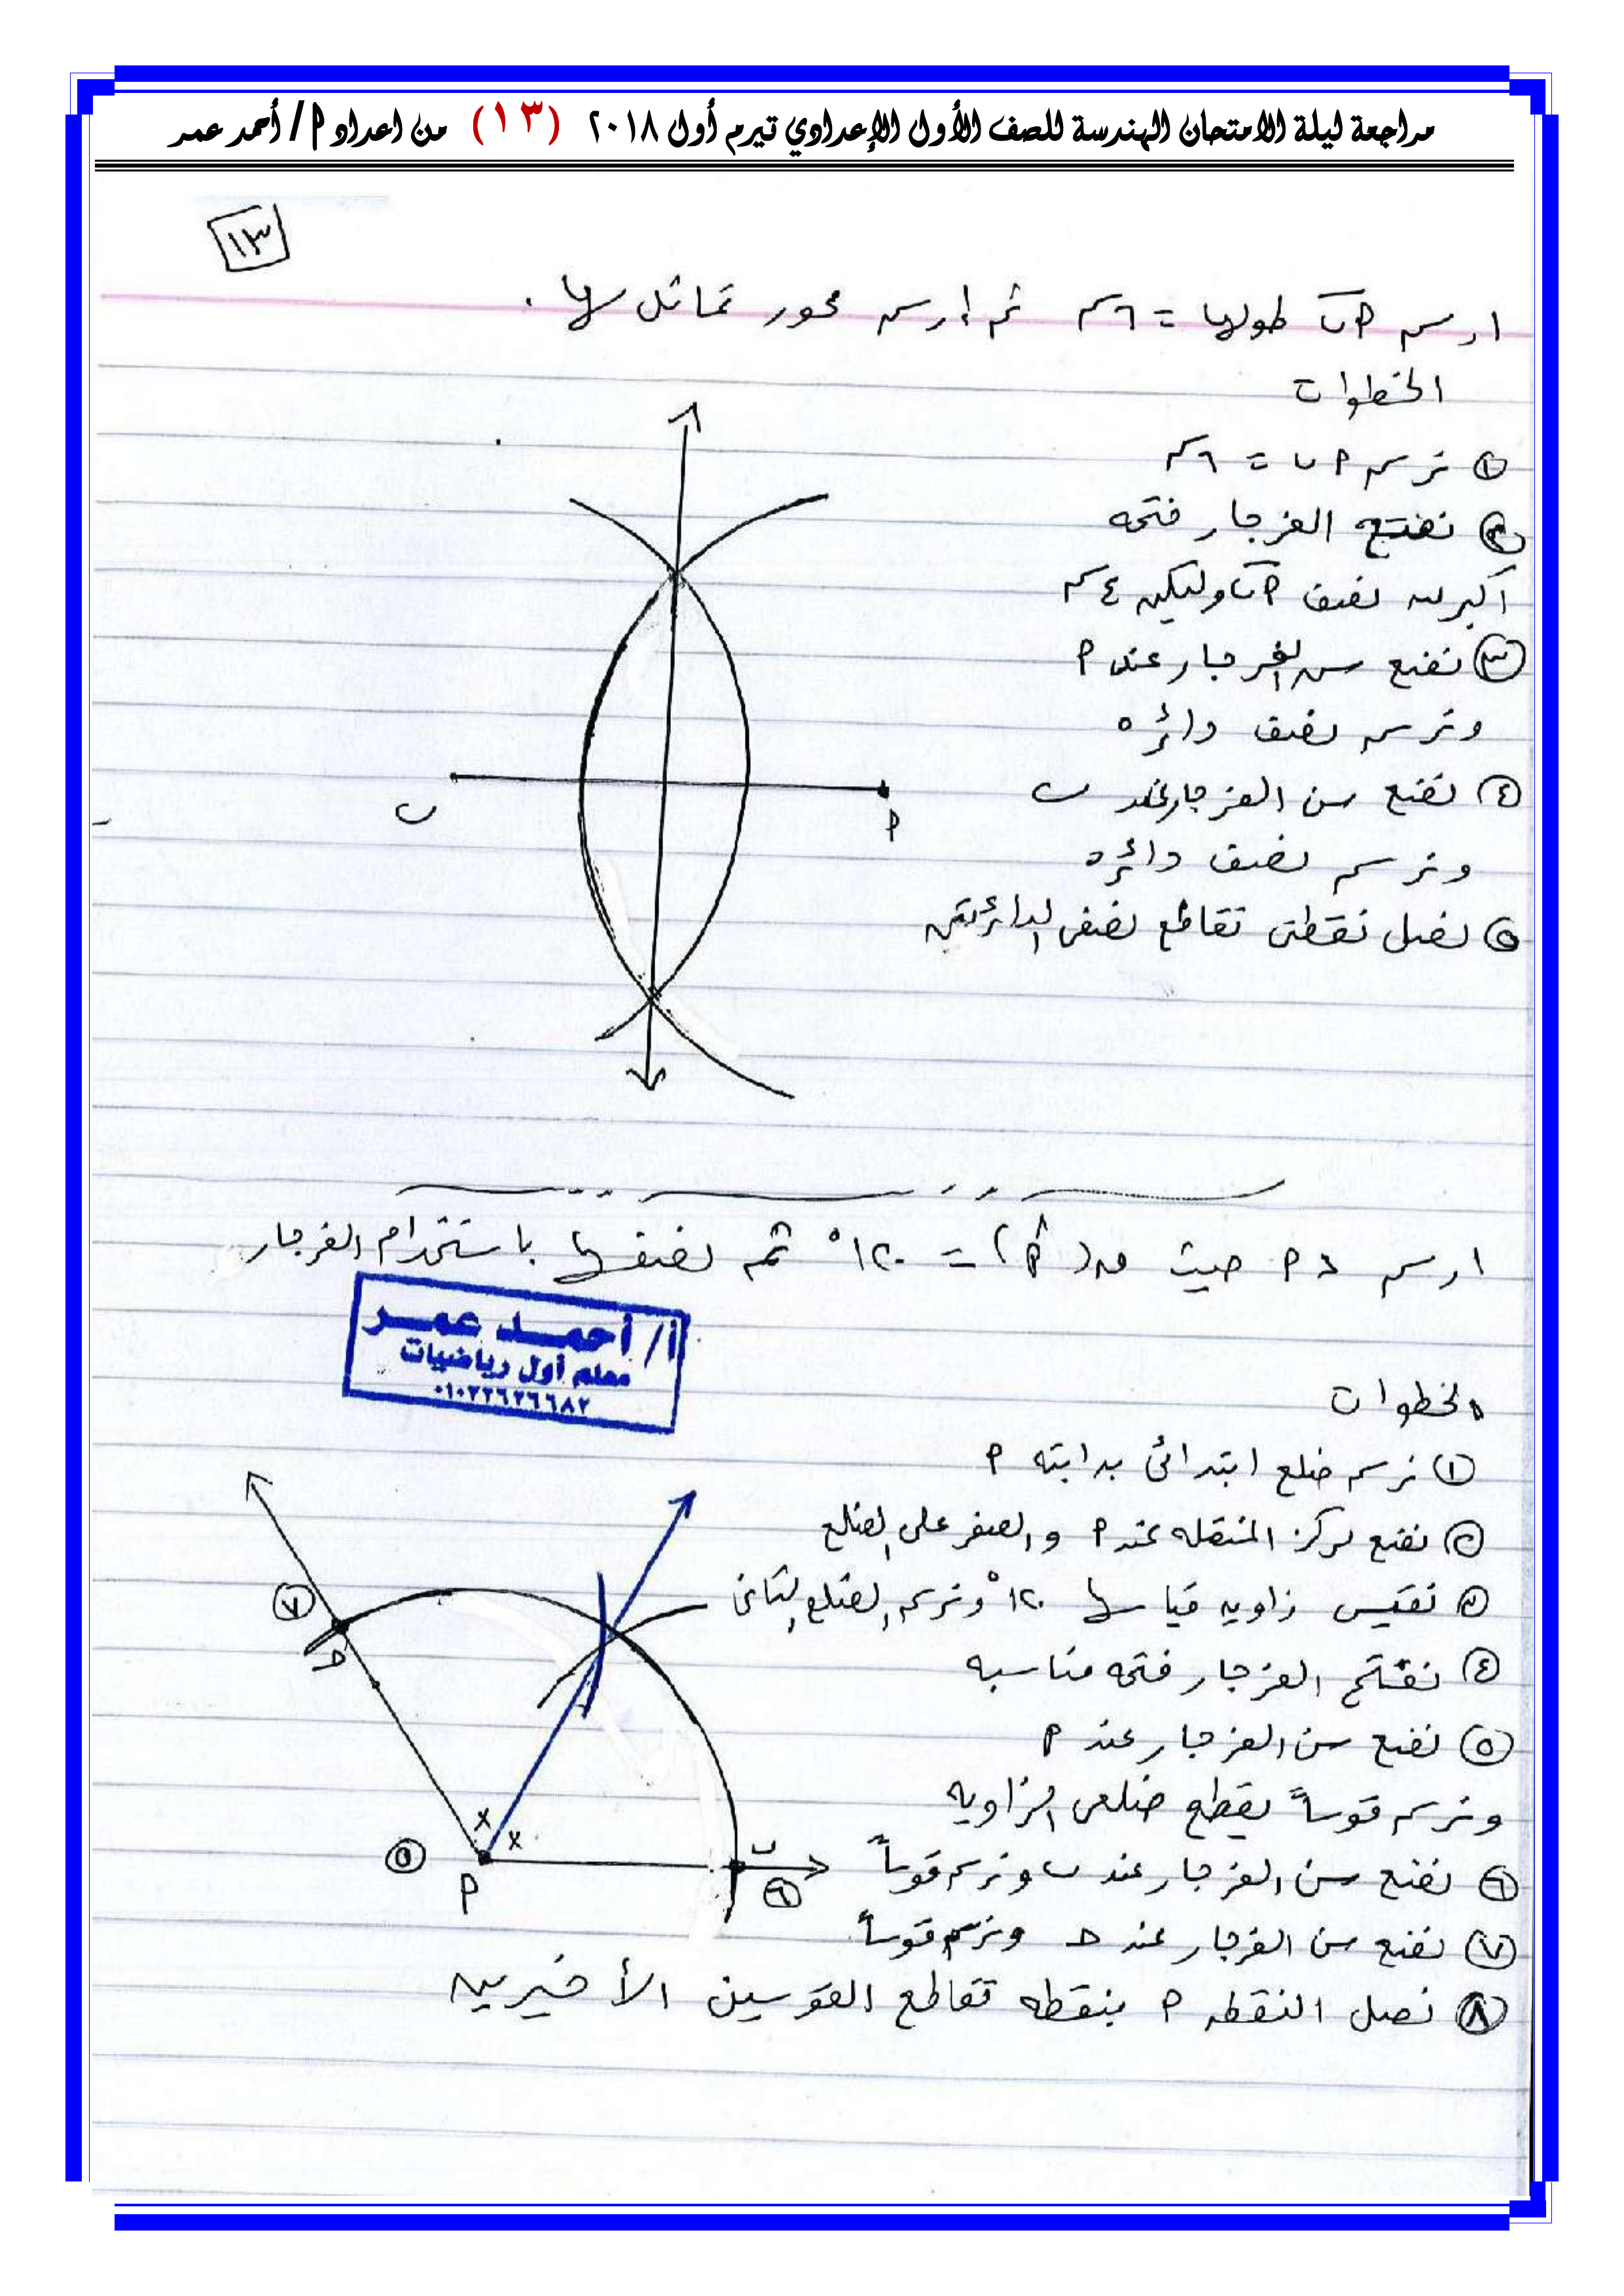 مراجعة ليلة الامتحان الهندسة للصف الأول الإعدادي تيرم أول ٢٠١٨ (١٣) من اعداد أ / أحمد عمر
١٣
ارسم أب طولها = ٦سم ثم ارسم محور تماثل لها .
الخطوات
١ نرسم أ ب = ٦سم
٢ نفتح الفرجار فتحه
أكبر من نصف أب وليكن ٤سم
٣ نضع سن الفرجار عند أ
ونرسم نصف دائره
٤ نضع سن الفرجار عند ب
ونرسم نصف دائره
٥ نصل نقطتى تقاطع نصفى الدائرتين
ب
أ
ارسم > أ حيث ق(أ) = ١٢٠° ثم نصفها باستخدام الفرجار
أ/ أحمد عمر
معلم أول رياضيات
٠١٠٢٢٦٢٦٦٨٢
الخطوات
١ نرسم ضلع ابتدائى بدايته أ
٢ نضع مركز المنقله عند أ والصفر على الضلع
٣ نقيس زاويه قياسها ١٢٠° ونرسم الضلع الثانى
٤ نفتح الفرجار فتحه مناسبه
٥ نضع سن الفرجار عند أ
ونرسم قوساً يقطع ضلعى الزاويه
٦ نضع سن الفرجار عند ب ونرسم قوساً
٧ نضع سن الفرجار عند ح ونرسم قوساً
٨ نصل النقطه أ بنقطه تقاطع القوسين الأخيرين
٧
ح
x
x
٥
أ
ب
٦